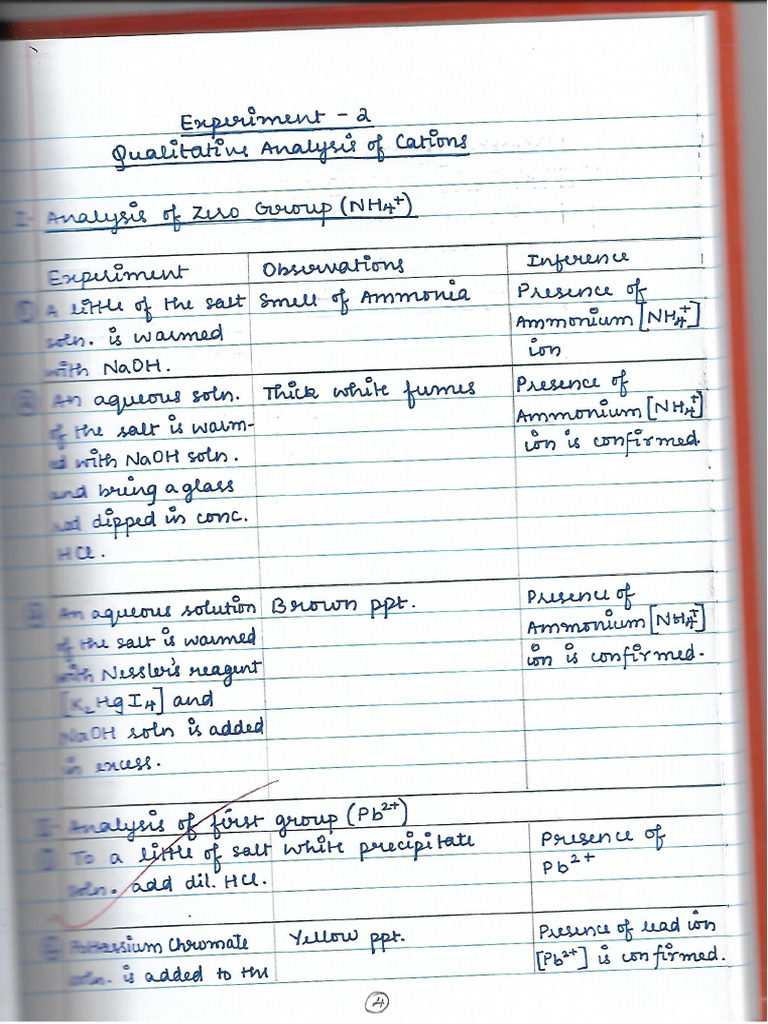 Experiment - 2
Qualitative Analysis of Cations
I- Analysis of Zero Group (NH4+)
Experiment Observations Inference
① A little of the salt Smell of Ammonia Presence of
soln. is warmed Ammonium [NH4+]
with NaOH. ion
② An aqueous soln. Thick white fumes Presence of
of the salt is warm- Ammonium [NH4+]
ed with NaOH soln. ion is confirmed.
and bring a glass
rod dipped in conc.
HCl.
③ An aqueous solution Brown ppt. Presence of
of the salt is warmed Ammonium [NH4+]
with Nessler's reagent ion is confirmed.
[K2HgI4] and
NaOH soln is added
in excess.
II- Analysis of first group (Pb2+)
① To a little of salt white precipitate Presence of
soln. add dil. HCl. Pb2+
② Potassium Chromate Yellow ppt. Presence of lead ion
soln. is added to the [Pb2+] is confirmed.
4